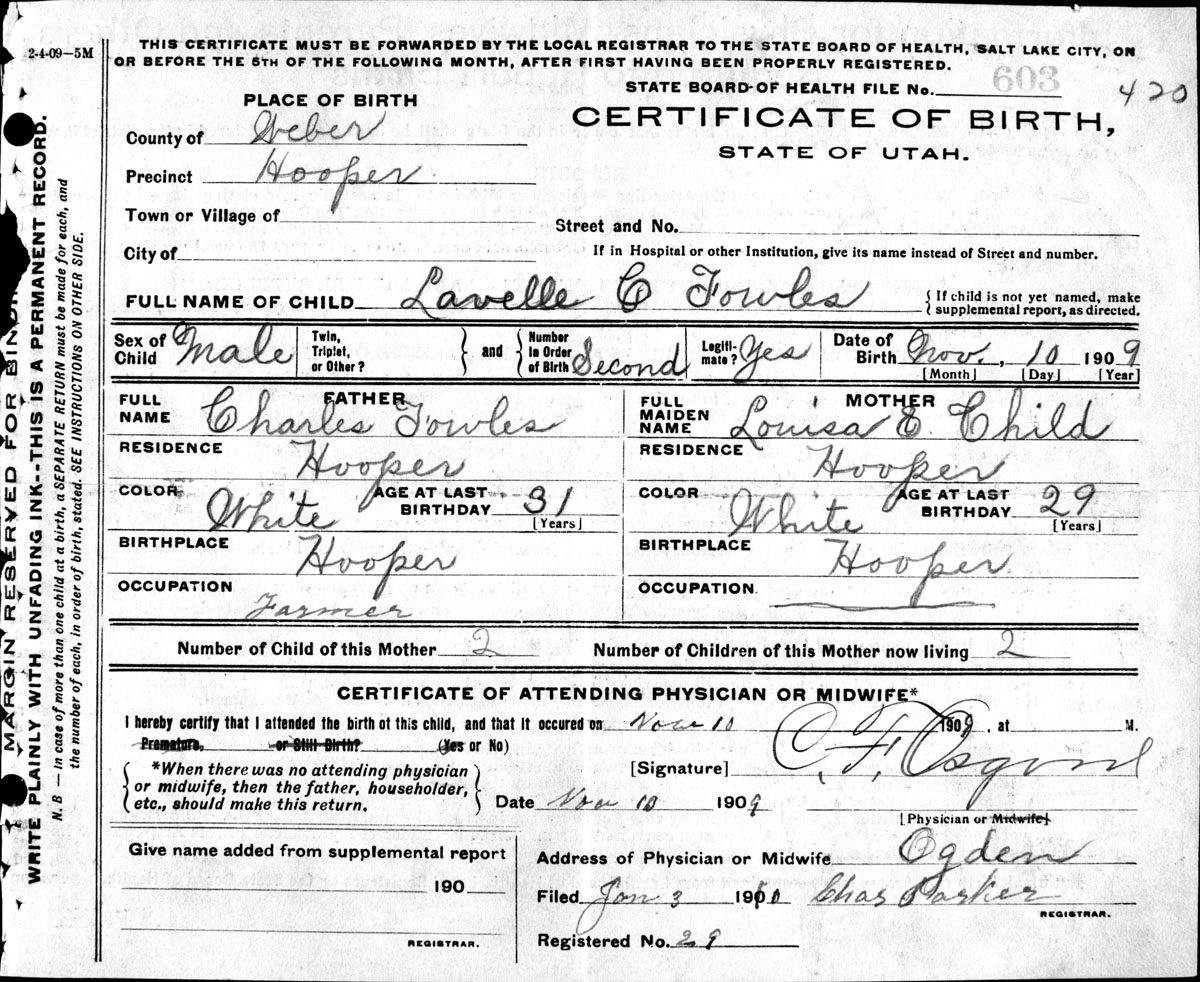 2-4-09—5M
THIS CERTIFICATE MUST BE FORWARDED BY THE LOCAL REGISTRAR TO THE STATE BOARD OF HEALTH, SALT LAKE CITY, ON
OR BEFORE THE 5TH OF THE FOLLOWING MONTH, AFTER FIRST HAVING BEEN PROPERLY REGISTERED.
603
STATE BOARD OF HEALTH FILE No. 420
PLACE OF BIRTH
CERTIFICATE OF BIRTH,
STATE OF UTAH.
County of Weber
Precinct Hooper
Town or Village of
Street and No.
City of
If in Hospital or other Institution, give its name instead of Street and number.
FULL NAME OF CHILD Lavelle C Fowles
{ If child is not yet named, make
{ supplemental report, as directed.
Sex of Child Male
Twin, Triplet, or Other?
and
Number in Order of Birth Second
Legiti-mate? Yes
Date of Birth Nov. 10 1909
[Month] [Day] [Year]
FATHER
FULL NAME Charles Fowles
RESIDENCE Hooper
COLOR White AGE AT LAST BIRTHDAY 31
[Years]
BIRTHPLACE Hooper
OCCUPATION Farmer
MOTHER
FULL MAIDEN NAME Louisa E. Child
RESIDENCE Hooper
COLOR White AGE AT LAST BIRTHDAY 29
[Years]
BIRTHPLACE Hooper
OCCUPATION
Number of Child of this Mother 2 Number of Children of this Mother now living 2
CERTIFICATE OF ATTENDING PHYSICIAN OR MIDWIFE*
I hereby certify that I attended the birth of this child, and that it occured on Nov 10 1909, at M.
Premature, or Still Birth? (Yes or No)
*When there was no attending physician
or midwife, then the father, householder,
etc., should make this return.
[Signature] C. F. Osgood
Date Nov 10 1909
[Physician or Midwife]
Give name added from supplemental report
190
REGISTRAR.
Address of Physician or Midwife Ogden
Filed Jan 3 1910 Chas Parker
REGISTRAR.
Registered No. 29
MARGIN RESERVED FOR
WRITE PLAINLY WITH UNFADING INK--THIS IS A PERMANENT RECORD.
N. B — In case of more than one child at a birth, a SEPARATE RETURN must be made for each, and
the number of each, in order of birth, stated. SEE INSTRUCTIONS ON OTHER SIDE.